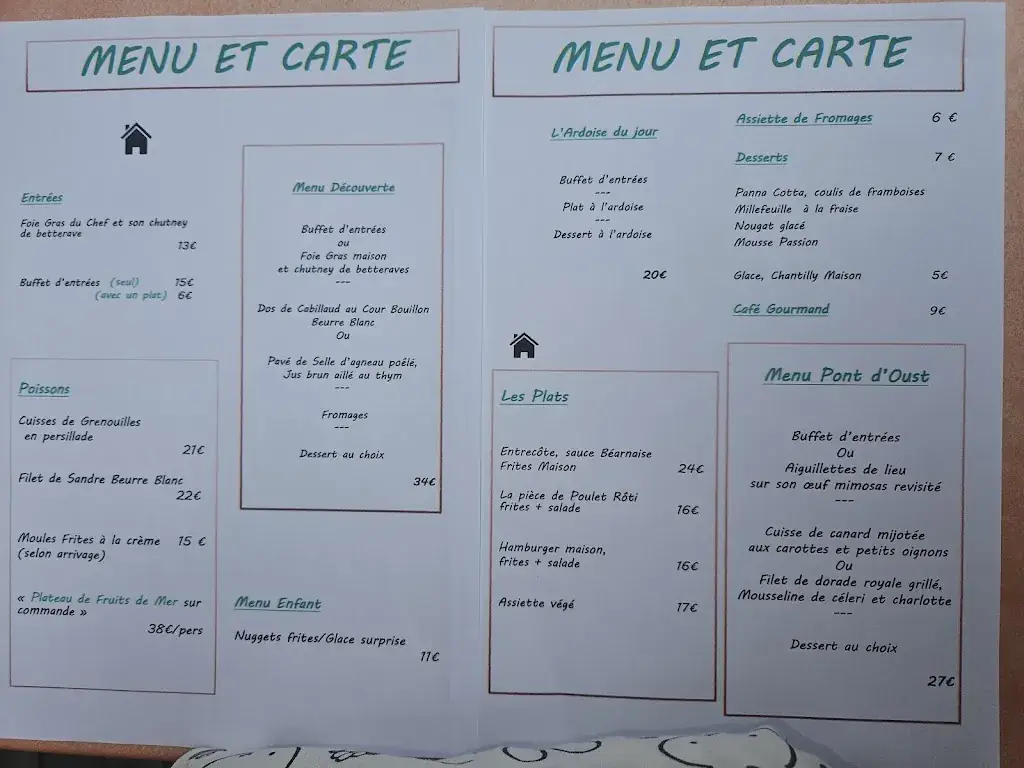 MENU ET CARTE
Entrées
Foie Gras du Chef et son chutney
de betterave
13€
Buffet d'entrées (seul) 15€
(avec un plat) 6€
Poissons
Cuisses de Grenouilles
en persillade
21€
Filet de Sandre Beurre Blanc
22€
Moules Frites à la crème 15 €
(selon arrivage)
« Plateau de Fruits de Mer sur
commande »
38€/pers
Menu Découverte
Buffet d'entrées
ou
Foie Gras maison
et chutney de betteraves
---
Dos de Cabillaud au Cour Bouillon
Beurre Blanc
Ou
Pavé de Selle d'agneau poêlé,
Jus brun aillé au thym
---
Fromages
---
Dessert au choix
34€
Menu Enfant
Nuggets frites/Glace surprise
11€
MENU ET CARTE
L'Ardoise du jour
Buffet d'entrées
---
Plat à l'ardoise
---
Dessert à l'ardoise
20€
Les Plats
Entrecôte, sauce Béarnaise
Frites Maison 24€
La pièce de Poulet Rôti
frites + salade 16€
Hamburger maison,
frites + salade 16€
Assiette végé 17€
Assiette de Fromages 6 €
Desserts 7 €
Panna Cotta, coulis de framboises
Millefeuille à la fraise
Nougat glacé
Mousse Passion
Glace, Chantilly Maison 5€
Café Gourmand 9€
Menu Pont d'Oust
Buffet d'entrées
Ou
Aiguillettes de lieu
sur son œuf mimosas revisité
---
Cuisse de canard mijotée
aux carottes et petits oignons
Ou
Filet de dorade royale grillé,
Mousseline de céleri et charlotte
---
Dessert au choix
27€